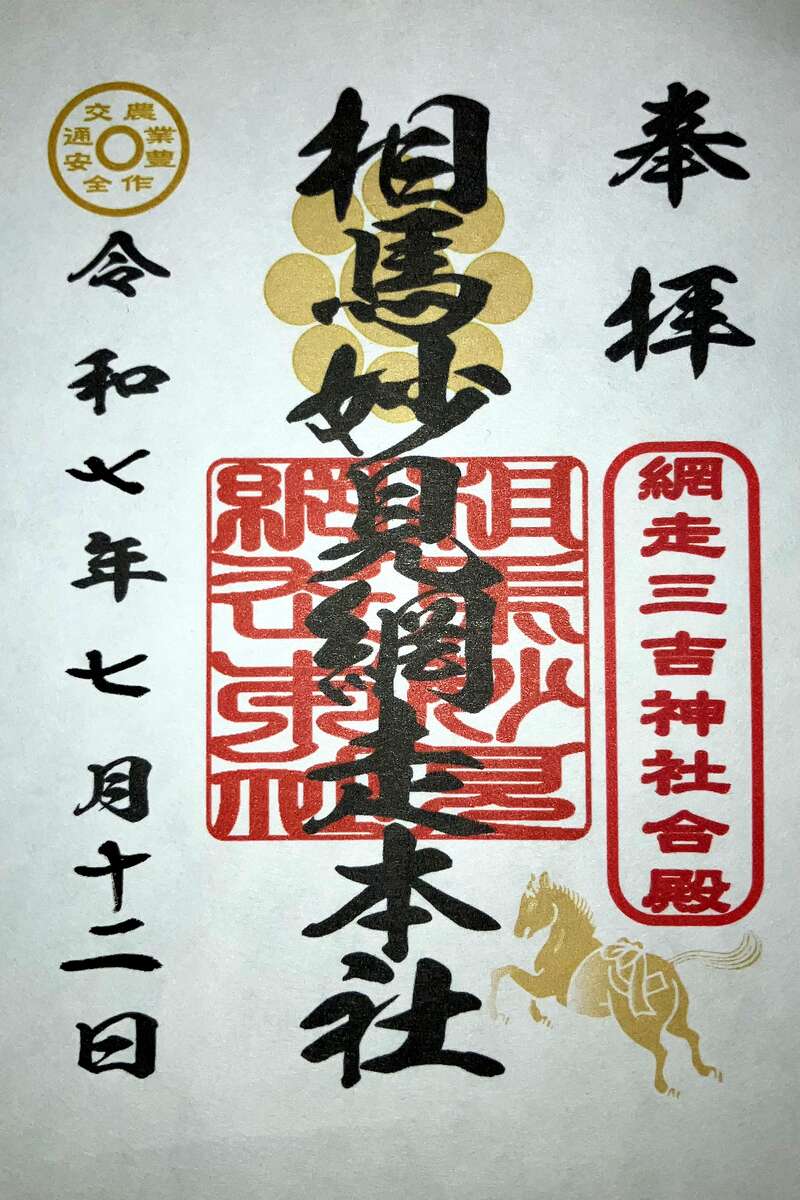 奉拝
網走三吉神社合殿
相馬妙見網走本社
相馬妙見
網走本社
農業豊作
交通安全
令和七年七月十二日